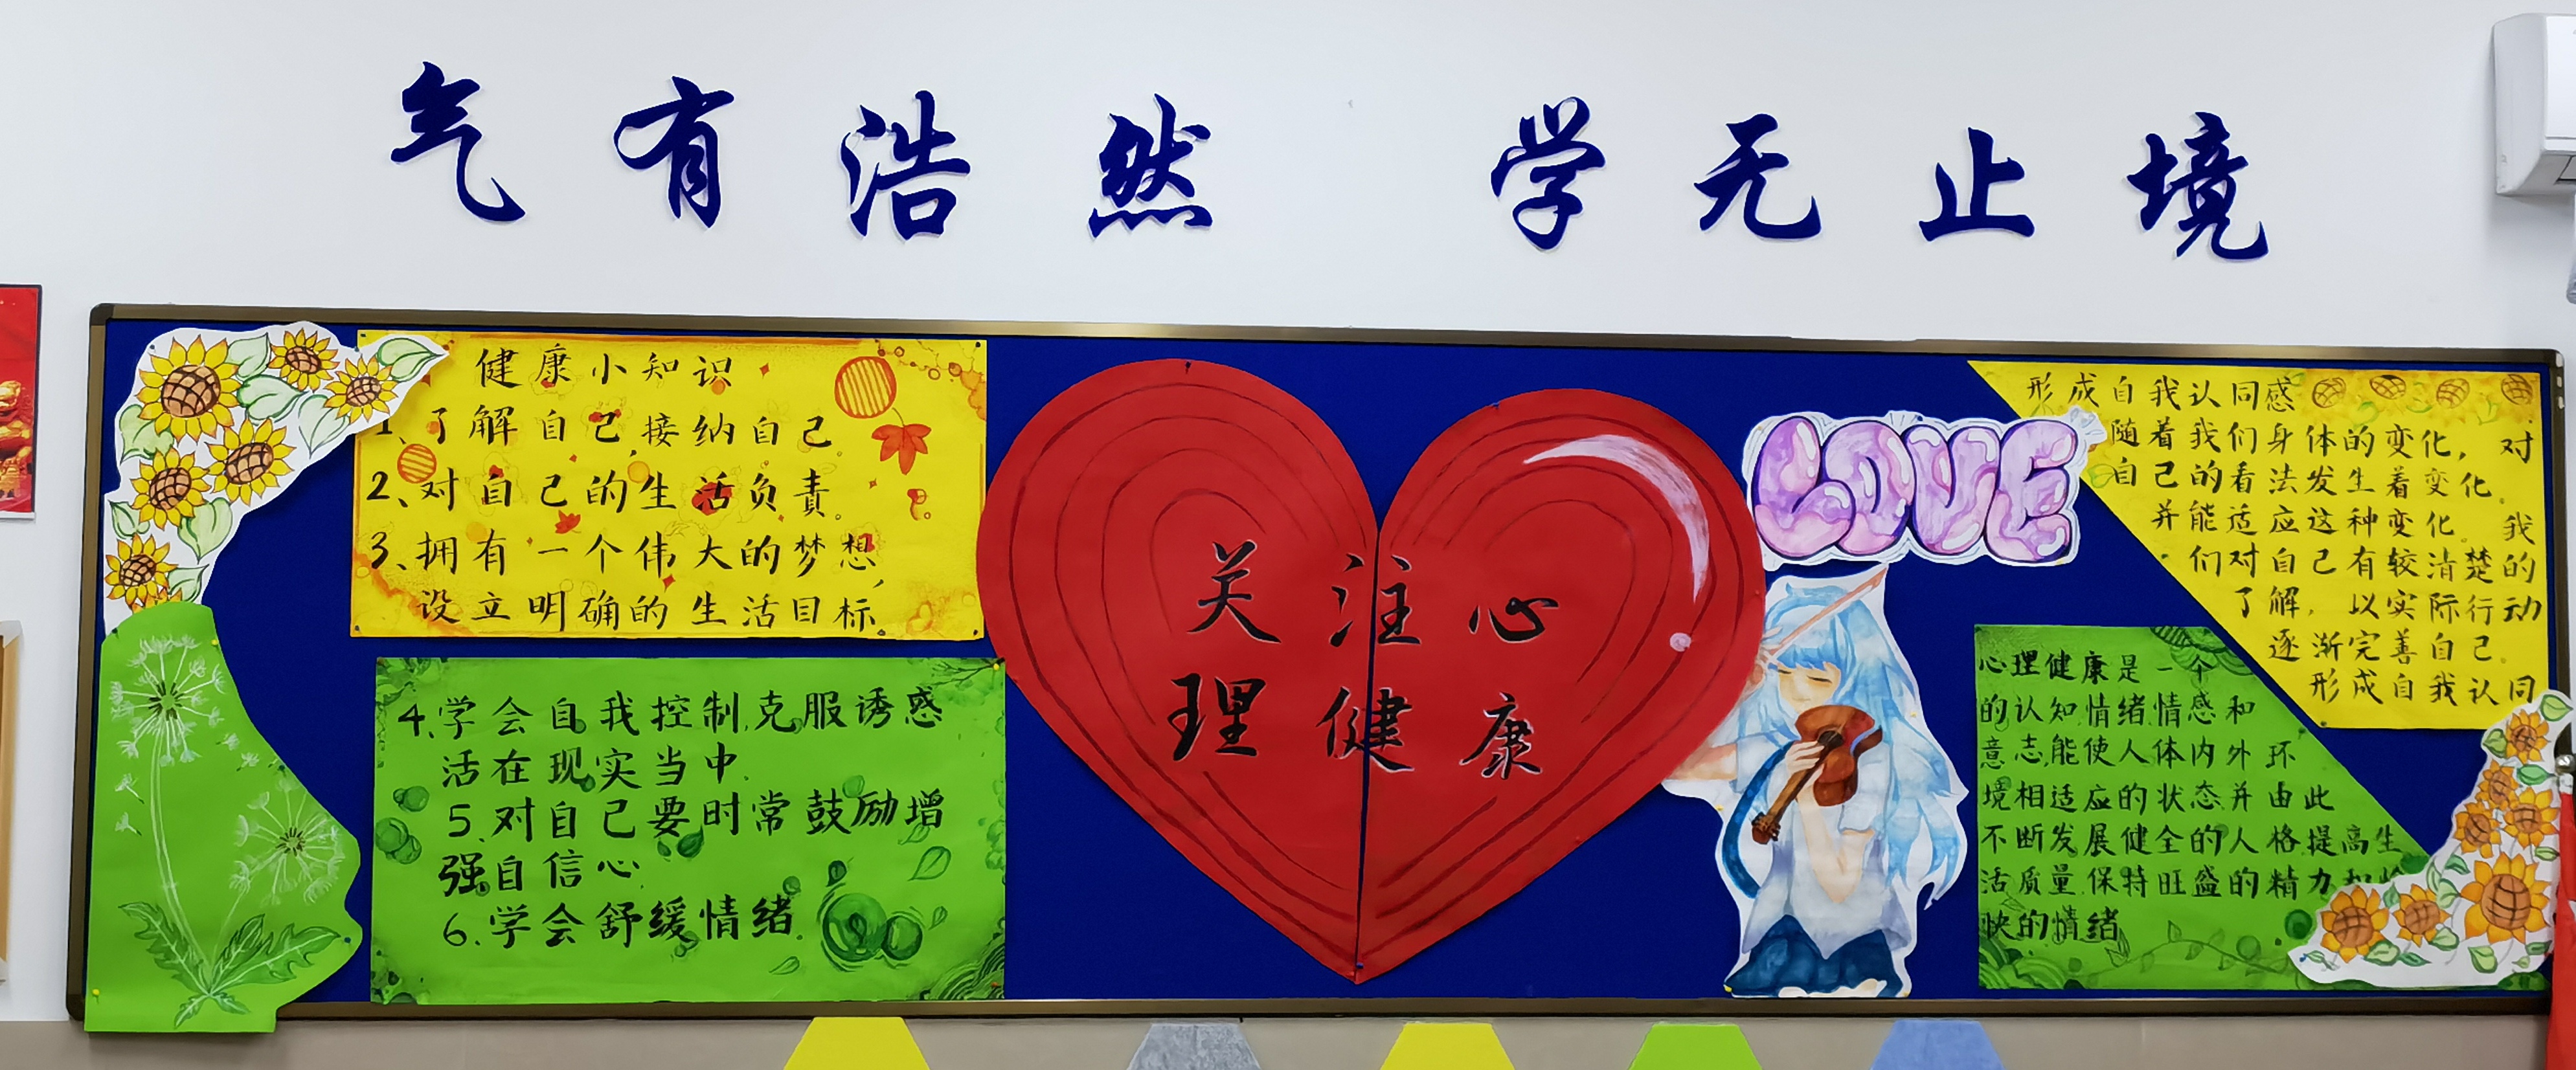 气有浩然 学无止境
健康小知识
1、了解自己,接纳自己
2、对自己的生活负责。
3、拥有一个伟大的梦想,
设立明确的生活目标。
4、学会自我控制,克服诱惑
活在现实当中.
5、对自己要时常鼓励增
强自信心.
6、学会舒缓情绪.
关注心
理健康
LOVE
形成自我认同感
随着我们身体的变化,对
自己的看法发生着变化。
并能适应这种变化。我
们对自己有较清楚的
了解,以实际行动
逐渐完善自己。
形成自我认同
心理健康是一个
的认知情绪情感和
意志,能使人体内外环
境相适应的状态并由此
不断发展健全的人格提高生
活质量.保持旺盛的精力
快的情绪